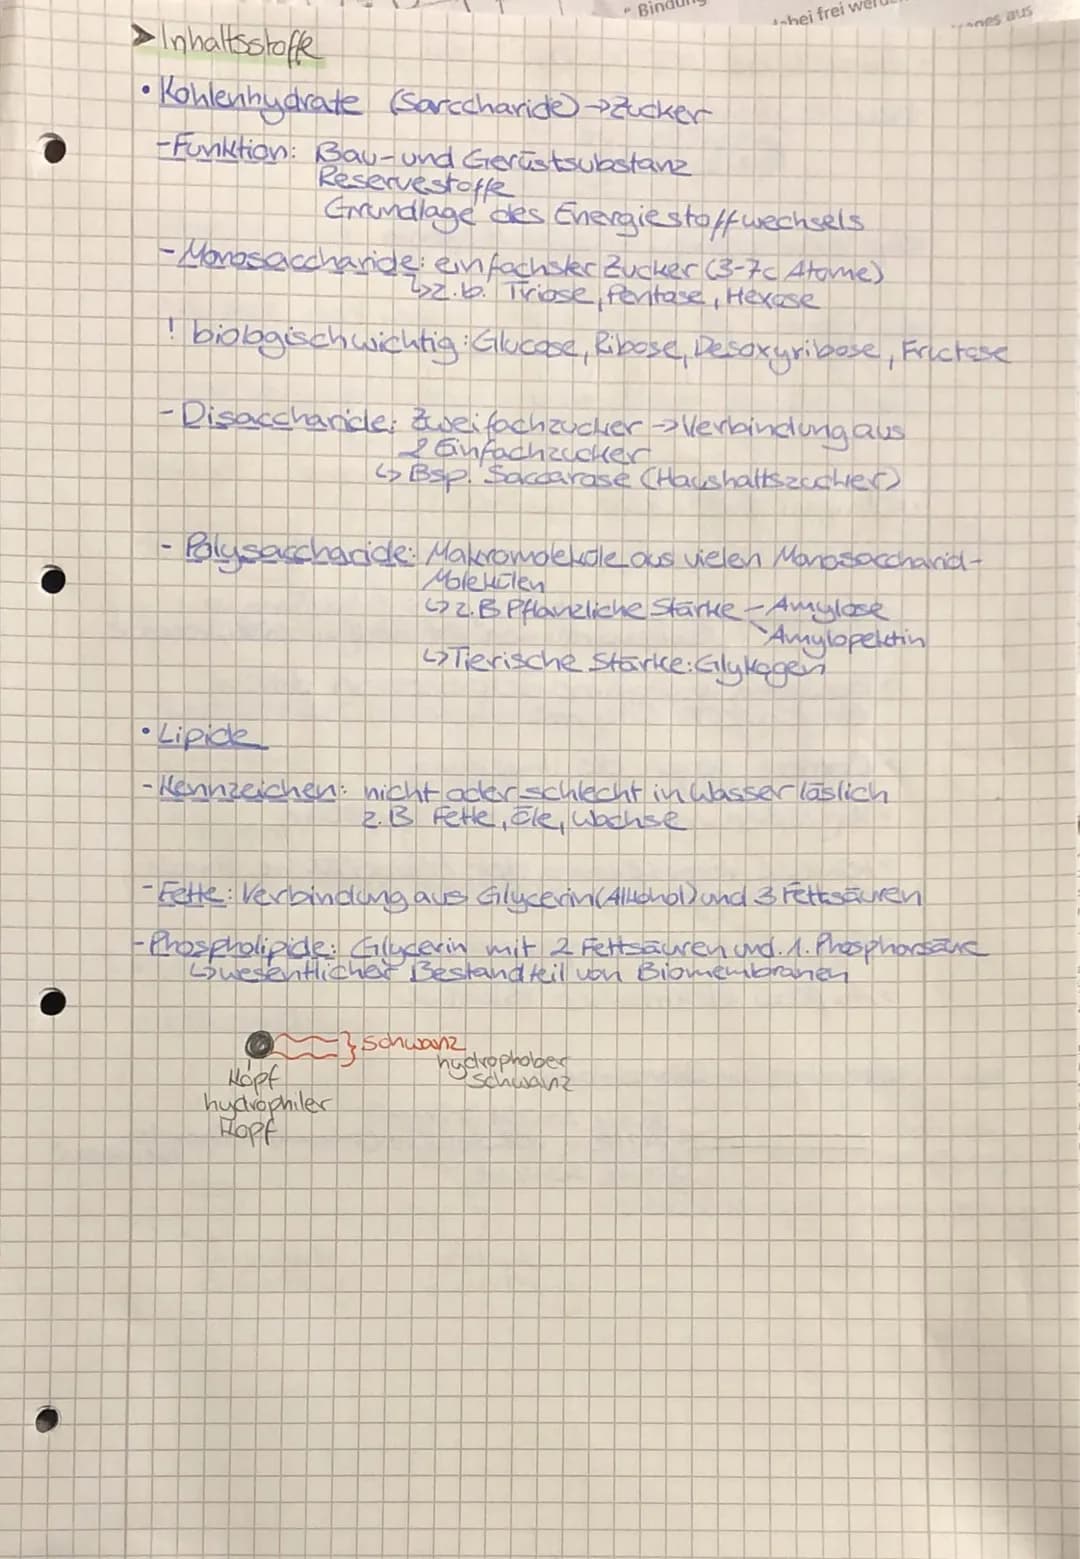 Bindung
dabei frei
aus
> Inhaltsstoffe
• Kohlenhydrate (Sarccharide) → Zucker
- Funktion: Bau- und Gerüstsubstanz
Reservestoffe
Grundlage des Energiestoffwechsels
- Monosaccharide: einfachster Zucker (3-7c Atome)
↳ z.b. Triose, Pentose, Hexose
! biologisch wichtig: Glucose, Ribose, Desoxyribose, Fructose
- Disaccharide: Zweifachzucker → Verbindung aus
2 Einfachzucker
↳ Bsp. Saccarose (Haushaltszucker)
- Polysaccharide: Makromoleküle aus vielen Monosaccharid-
Molekülen
↳ z.B Pflanzliche Stärke - Amylose
Amylopektin
↳ Tierische Stärke: Glykogen
• Lipide
- Kennzeichen: nicht oder schlecht in Wasser löslich
z.B Fette, Öle, Wachse
- Fette: Verbindung aus Glycerin (Alkohol) und 3 Fettsäuren
- Phospholipide: Glycerin mit 2 Fettsäuren und. 1. Phosphorsäure
↳ wesentlicher Bestandteil von Biomembranen
} Schwanz
hydrophober
Schwanz
Kopf
hydrophiler
Kopf